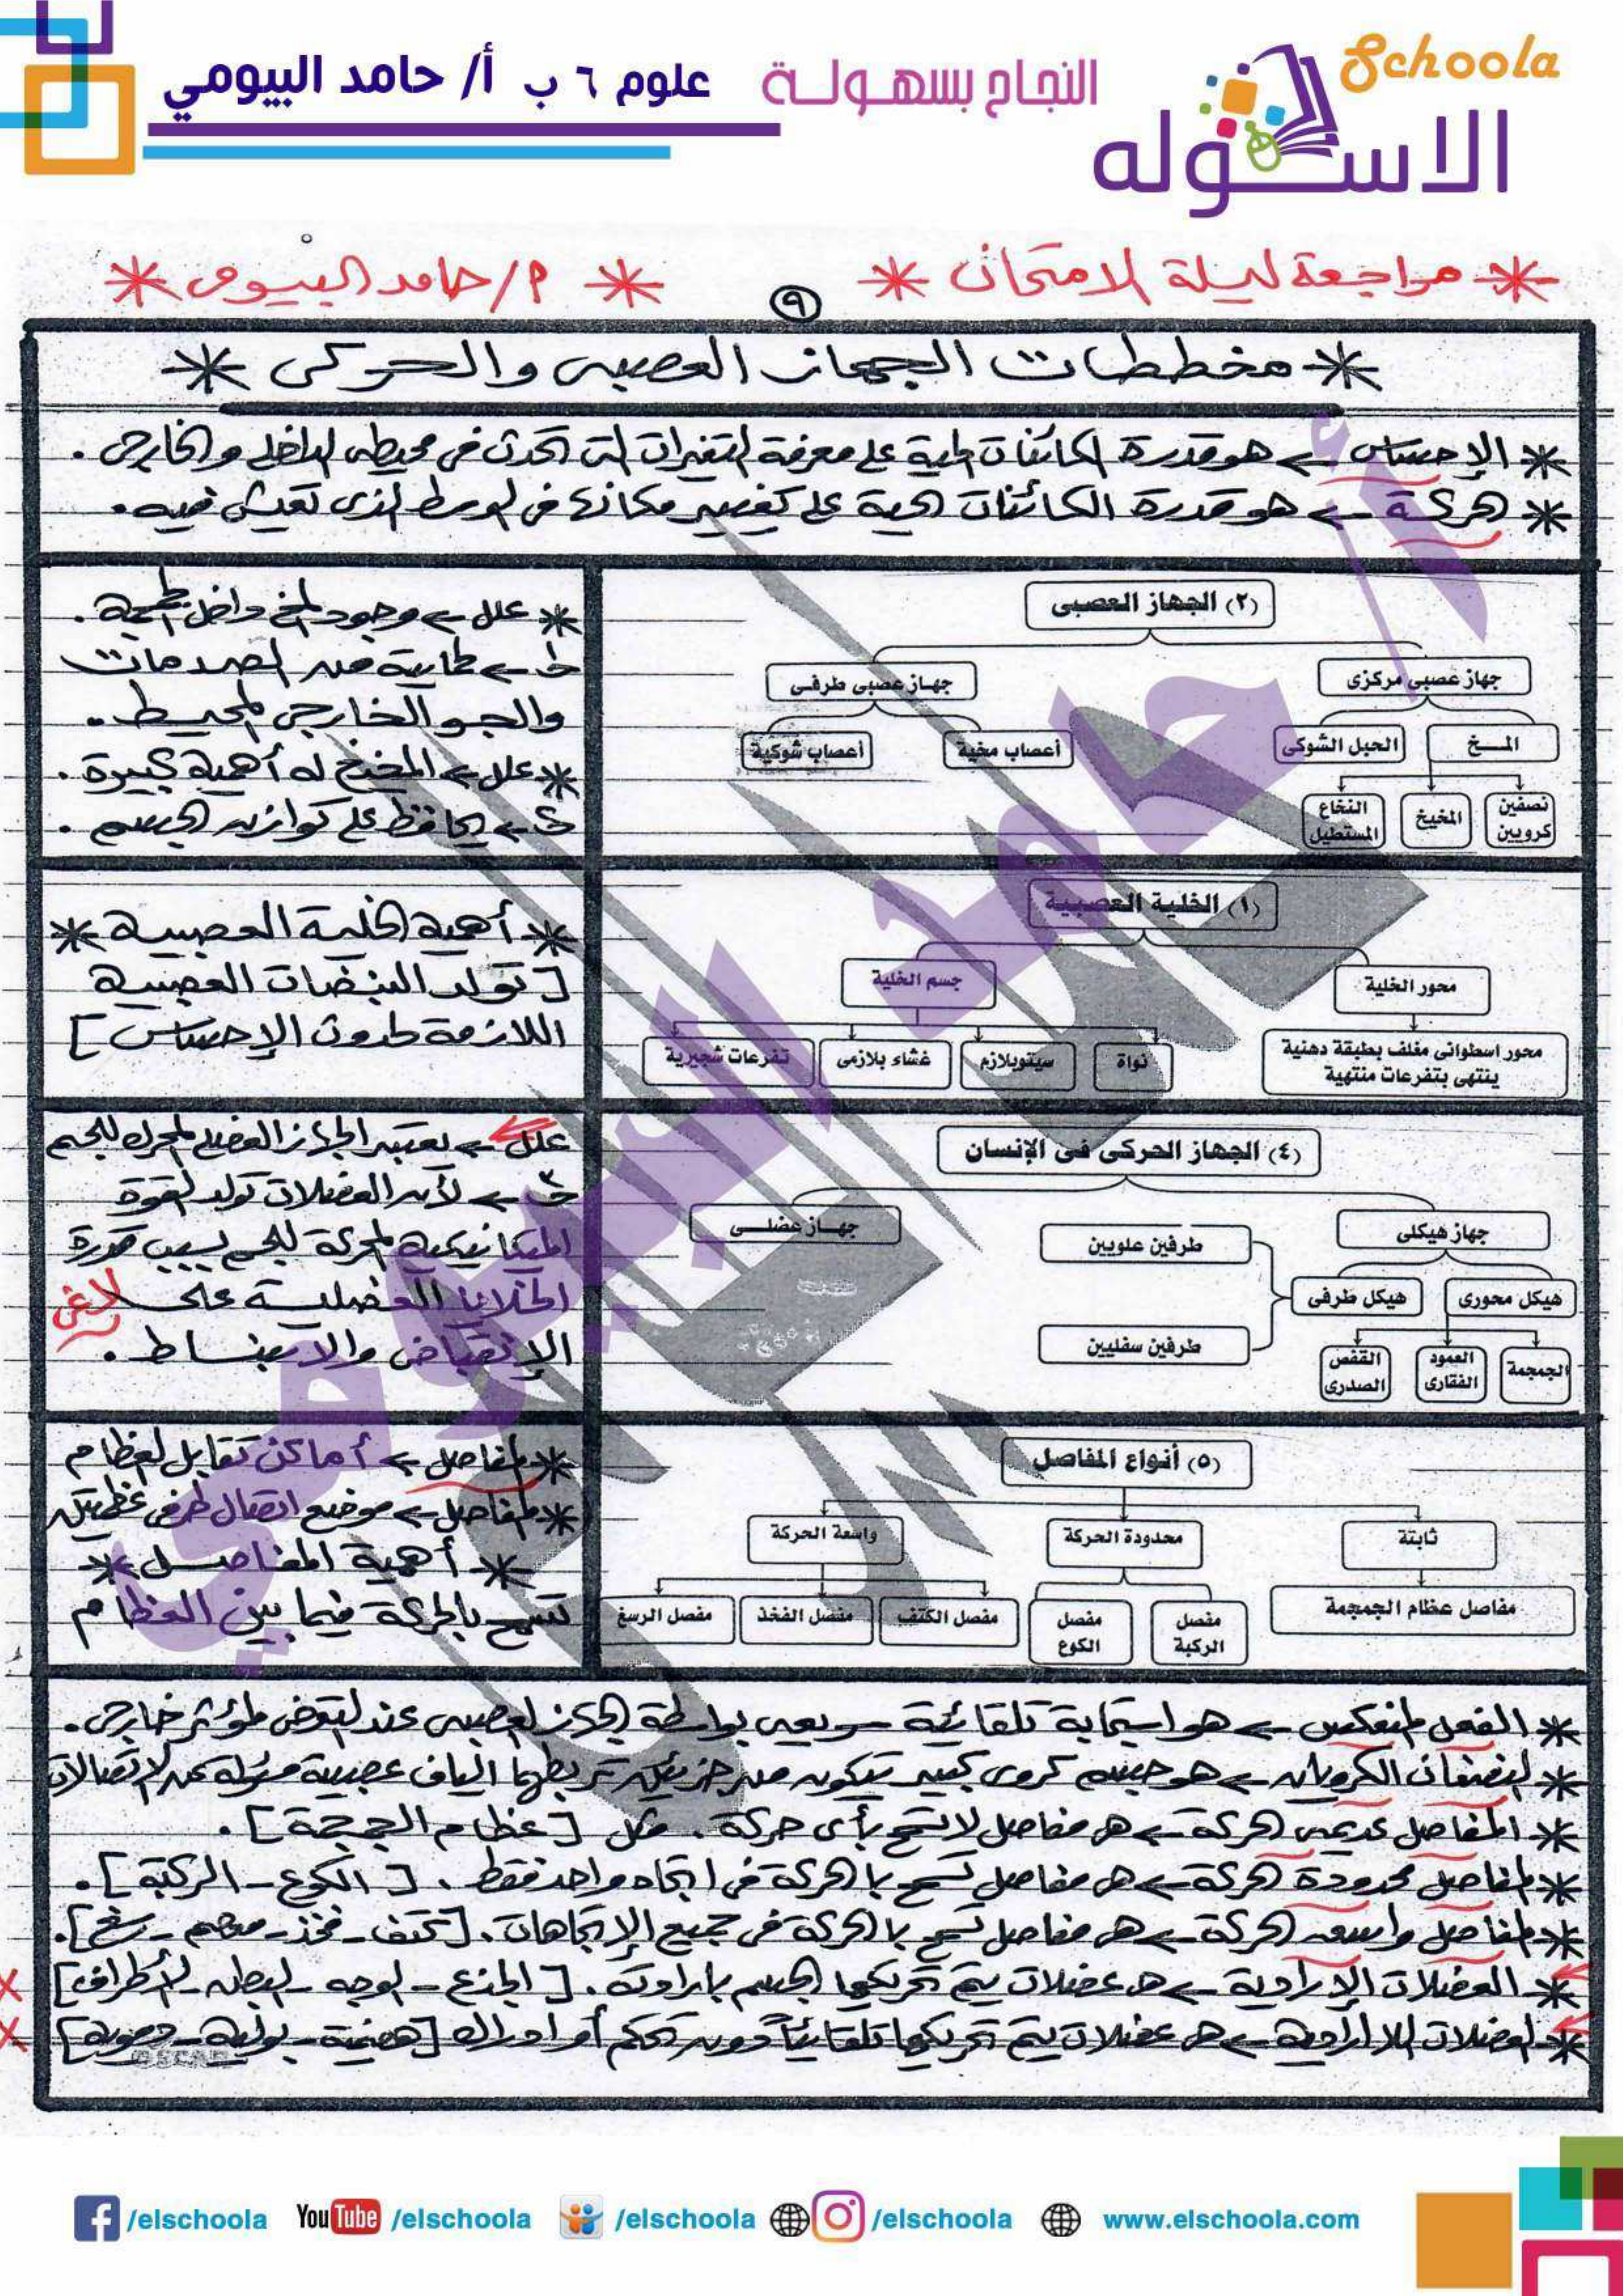 Schoola
الاسكوله
النجاح بسهولة
علوم ٦ ب أ/ حامد البيومي
* مراجعة ليلة الامتحان *
* م/ حامد البيومى *
٩
* مخططات الجهاز العصبى والحركى *
* الإحساس ← هو قدرة الكائنات الحية على معرفة التغيرات التى تحدث فى محيطها الداخلى والخارجى .
* الحركة ← هو قدرة الكائنات الحية على تغيير مكانها فى الوسط الذى تعيش فيه .
(٢) الجهاز العصبى
جهاز عصبى مركزى
جهاز عصبى طرفى
المخ
الحبل الشوكى
أعصاب مخية
أعصاب شوكية
نصفين كرويين
المخيخ
النخاع المستطيل
* علل ← وجود المخ داخل الجمجمة .
جـ ← لحمايته من الصدمات
والجو الخارجى المحيط .
* علل ← المخيخ له أهمية كبيرة .
جـ ← يحافظ على توازن الجسم .
(١) الخلية العصبية
محور الخلية
جسم الخلية
محور اسطوانى مغلف بطبقة دهنية
ينتهى بتفرعات منتهية
نواة
سيتوبلازم
غشاء بلازمى
تفرعات شجيرية
* أهمية الخلية العصبية *
[ تولد النبضات العصبية
اللازمة لحدوث الإحساس ]
(٤) الجهاز الحركى فى الإنسان
جهاز هيكلى
جهاز عضلـى
طرفين علويين
هيكل محورى
هيكل طرفى
طرفين سفليين
الجمجمة
العمود الفقارى
القفص الصدرى
علل ← يعتبر الجهاز العضلى المحرك للجسم
جـ ← لأن العضلات تولد القوة
الميكانيكية المحركة للجسم بسبب قدرة
الخلايا العضلية على
الإنقباض والانبساط .
(٥) أنواع المفاصل
ثابتة
محدودة الحركة
واسعة الحركة
مفاصل عظام الجمجمة
مفصل الركبة
مفصل الكوع
مفصل الكتف
مفصل الفخذ
مفصل الرسغ
* المفاصل ← أماكن تقابل العظام
* المفاصل ← موضع اتصال طرفى عظمتين
* أهمية المفاصل *
تسمح بالحركة فيما بين العظام
* الفعل المنعكس ← هو استجابة تلقائية سريعة بواسطة الجهاز العصبى عند التعرض لمؤثر خارجى .
* النصفان الكرويان ← هو جسم كروى كبير يتكون من جزئين تربطهما الياف عصبية مسئولة عن الاتصالات
* المفاصل عديمة الحركة ← هى مفاصل لا تسمح بأى حركة . مثل [ عظام الجمجمة ] .
* المفاصل محدودة الحركة ← هى مفاصل تسمح بالحركة فى اتجاه واحد فقط . [ الكوع - الركبة ] .
* المفاصل واسعة الحركة ← هى مفاصل تسمح بالحركة فى جميع الإتجاهات . [ كتف - فخذ - معصم - رسغ ] .
* العضلات الإرادية ← هى عضلات يتم تحريكها الجسم بارادته . [ الجذع - الوجه - البطن - الأطراف ]
* العضلات اللاإرادية ← هى عضلات يتم تحريكها تلقائياً دون تحكم أو ادراك [ هضمية - بولية - دموية ]
أ/ حامد البيومي
/elschoola
YouTube /elschoola
/elschoola
/elschoola
www.elschoola.com